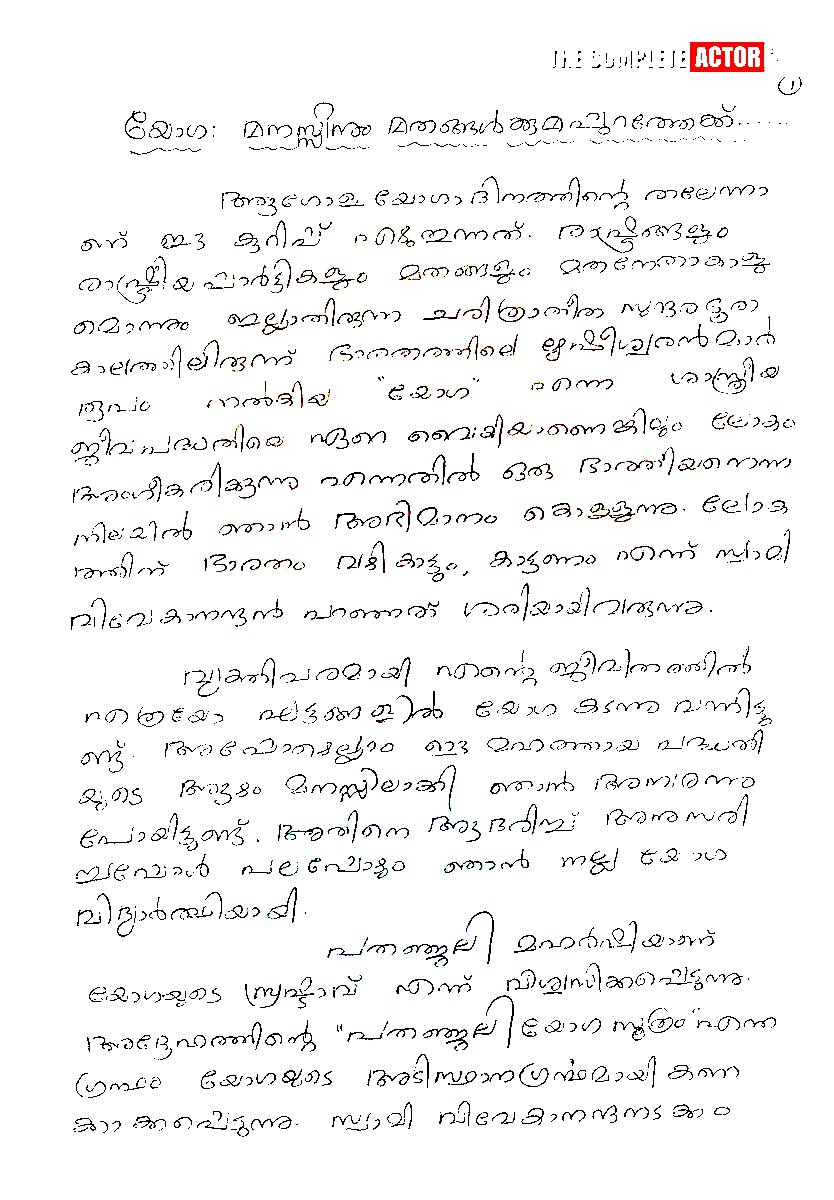 THE COMPLETE ACTOR
1
യോഗ: മനസ്സിനും മതങ്ങൾക്കുമപ്പുറത്തേക്ക്......
ആഗോള യോഗാ ദിനത്തിന്റെ തലേന്നാ
ണ് ഈ കുറിപ്പ് എഴുതുന്നത്. രാഷ്ട്രങ്ങളും
രാഷ്ട്രീയ പാർട്ടികളും മതങ്ങളും മതനേതാക്കളു
മൊന്നും ഇല്ലാതിരുന്ന ചരിത്രാതീത സുന്ദരപുരാ
കാലത്തിലിരുന്ന് ഭാരതത്തിലെ ഋഷീശ്വരൻമാർ
രൂപം നൽകിയ "യോഗ" എന്ന ശാസ്ത്രീയ
ജീവിപദ്ധതിയെ ഏറെ വൈകിയാണെങ്കിലും ലോകം
അംഗീകരിക്കുന്നു എന്നതിൽ ഒരു ഭാരതീയനെന്ന
നിലയിൽ ഞാൻ അഭിമാനം കൊള്ളുന്നു. ലോക
ത്തിന് ഭാരതം വഴികാട്ടും, കാട്ടണം എന്ന് സ്വാമി
വിവേകാനന്ദൻ പറഞ്ഞത് ശരിയായിവരുന്നു.
വ്യക്തിപരമായി എന്റെ ജീവിതത്തിൽ
എത്രയോ ഘട്ടങ്ങളിൽ യോഗ കടന്നു വന്നിട്ടു
ണ്ട്. അപ്പോഴെല്ലാം ഈ മഹത്തായ പദ്ധതി
യുടെ ആഴം മനസ്സിലാക്കി ഞാൻ അമ്പരന്നു
പോയിട്ടുണ്ട്. അതിനെ ആദരിച്ച് അനുസരി
ച്ചപ്പോൾ പലപ്പോഴും ഞാൻ നല്ല യോഗ
വിദ്യാർത്ഥിയായി.
പതഞ്ജലി മഹർഷിയാണ്
യോഗയുടെ സ്രഷ്ടാവ് എന്ന് വിശ്വസിക്കപ്പെടുന്നു.
അദ്ദേഹത്തിന്റെ "പതഞ്ജലി യോഗ സൂത്രം" എന്ന
ഗ്രന്ഥം യോഗയുടെ അടിസ്ഥാനഗ്രന്ഥമായി കണ
ക്കാക്കപ്പെടുന്നു. സ്വാമി വിവേകാനന്ദനടക്കം